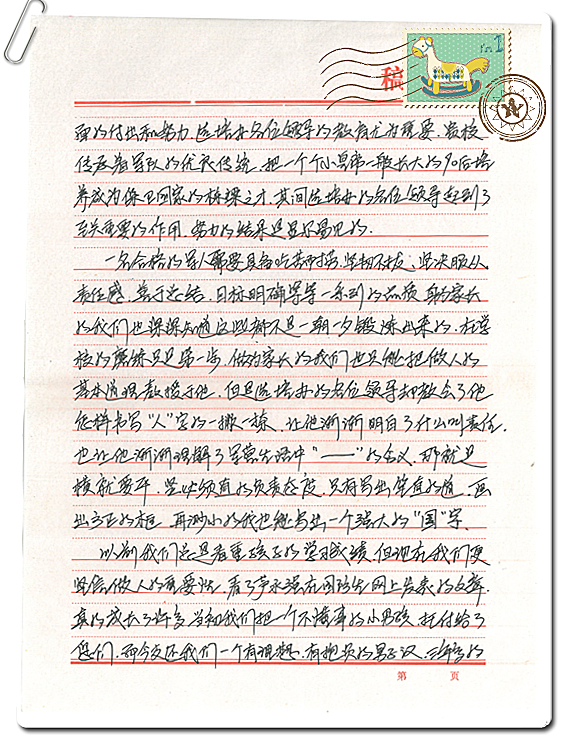 稿
面的付出和努力,选培办各位领导的教育尤为重要,贵校
传承着军队的优良传统,把一个个小皇帝一般长大的90后培
养成为保卫国家的栋梁之才,其间选培办的各位领导起到了
至关重要的作用,努力的结果是显而易见的.
一名合格的军人需要具备吃苦耐劳,坚韧不拔,坚决服从,
责任感,善于总结,目标明确等等一系列的品质,身为家长
的我们也深深知道这些都不是一朝一夕锻炼出来的,在学
校的磨练只是第一步,做为家长的我们也只能把做人的
基本道理教授于他,但是选培办的各位领导却教会了他
怎样书写"人"字的一撇一捺,让他渐渐明白了什么叫责任,
也让他渐渐理解了军营生活中"一——"的含义,那就是
横就要平,竖必须直的负责态度,只有写出笔直的道,画
出方正的框,再渺小的我也能写出一个强大的"国"字.
以前我们总是看重孩子的学习成绩,但现在我们更
坚信做人的重要性,看了永强在国防生网上发表的文章,
真的成长了许多,当初我们把一个不懂事的小男孩托付给了
您们,而今还我们一个有理想,有抱负的男子汉,三年多的
第 页